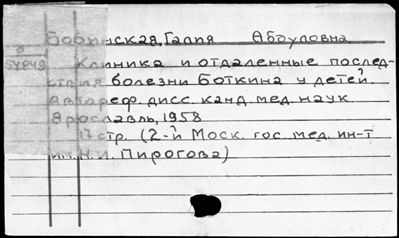 Бобринская, Галия Абдуловна
54849 Клиника и отдаленные послед-
ствия болезни Боткина у детей.
Автореф. дисс. канд. мед. наук.
Ярославль, 1958
17 стр. (2-й Моск. гос. мед. ин-т
им. Н. И. Пирогова)